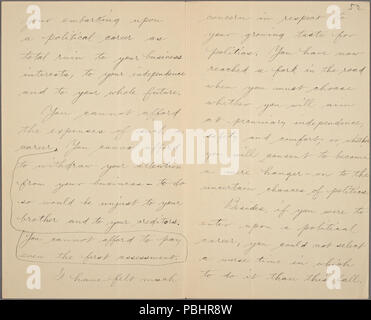 your embarking upon
a political career as
total ruin to your business
interests, to your independence
and to your whole future.
You cannot afford
the expenses of such a
career. You cannot afford
to withdraw your attention
from your business - to do
so would be unjust to your
brother and to your creditors.
You cannot afford to pay
even the first assessment.
I have felt much
52
concern in respect to
your growing taste for
politics. You have now
reached a fork in the road
when you must choose
whether you will aim
at pecuniary independence,
solid, and comfort, or whether
you will consent to become
a mere hanger-on to the
uncertain chances of politics.
Besides, if you were to
enter upon a political
career, you could not select
a worse time in which
to do it than this fall.
alamy
Image ID: PBHR8W
www.alamy.com